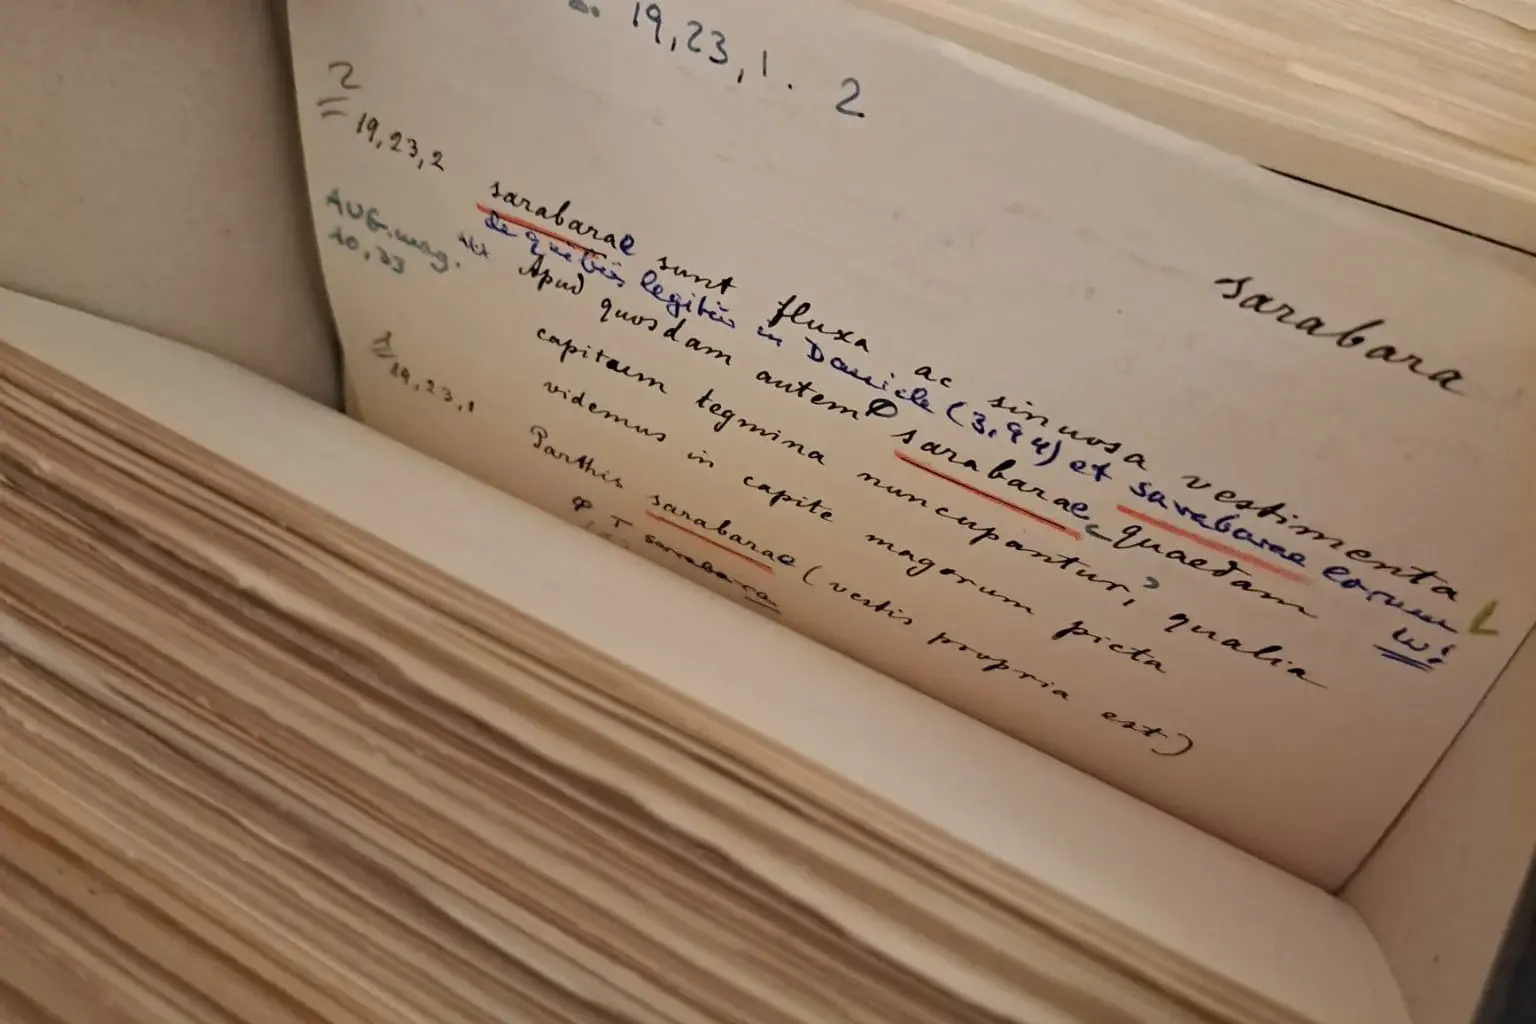 19,23,1. 2
sarabara
2
19,23,2
sarabarae sunt fluxa ac sinuosa vestimenta
de quibus legitur in Daniele (3,94) et sarabarae eorum
AUG. mag.
10,33
Apud quosdam autem sarabarae quaedam
capitum tegmina nuncupantur, qualia
videmus in capite magorum picta
1
19,23,1
Parthis sarabarae (vestis propria est)
sarabara